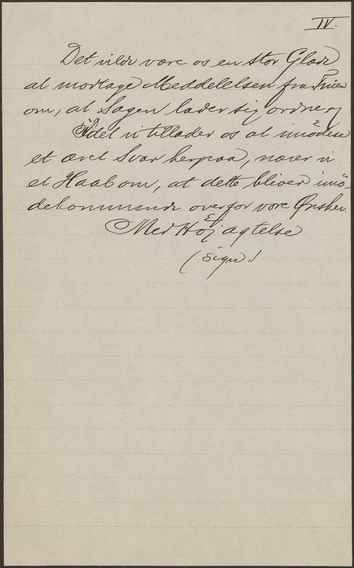 IV.
Det vilde være os en stor Glæde
at modtage Meddelelsen fra Firmaet
om, at Sagen lader sig ordne, og
Idet vi tillader os at imødese
et æret Svar herpaa, nærer vi
et Haab om, at dette bliver imø-
dekommende overfor vore Ønsker.
Med Højagtelse
(sign.)